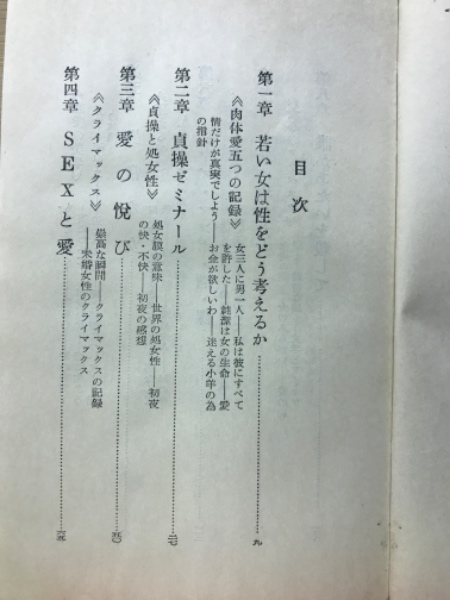 目次
第一章 若い女は性をどう考えるか……九
《肉体愛五つの記録》
女三人に男一人――私は彼にすべて
を許した――純潔は女の生命――愛
情だけが真実でしょう――お金が欲しいわ――迷える小羊の為
の指針
第二章 貞操ゼミナール……二七
《貞操と処女性》
処女膜の意味――世界の処女性――初夜
の快・不快――初夜の感想
第三章 愛の悦び……五〇
《クライマックス》
崇高な瞬間――クライマックスの記録
――未婚女性のクライマックス
第四章 SEXと愛……